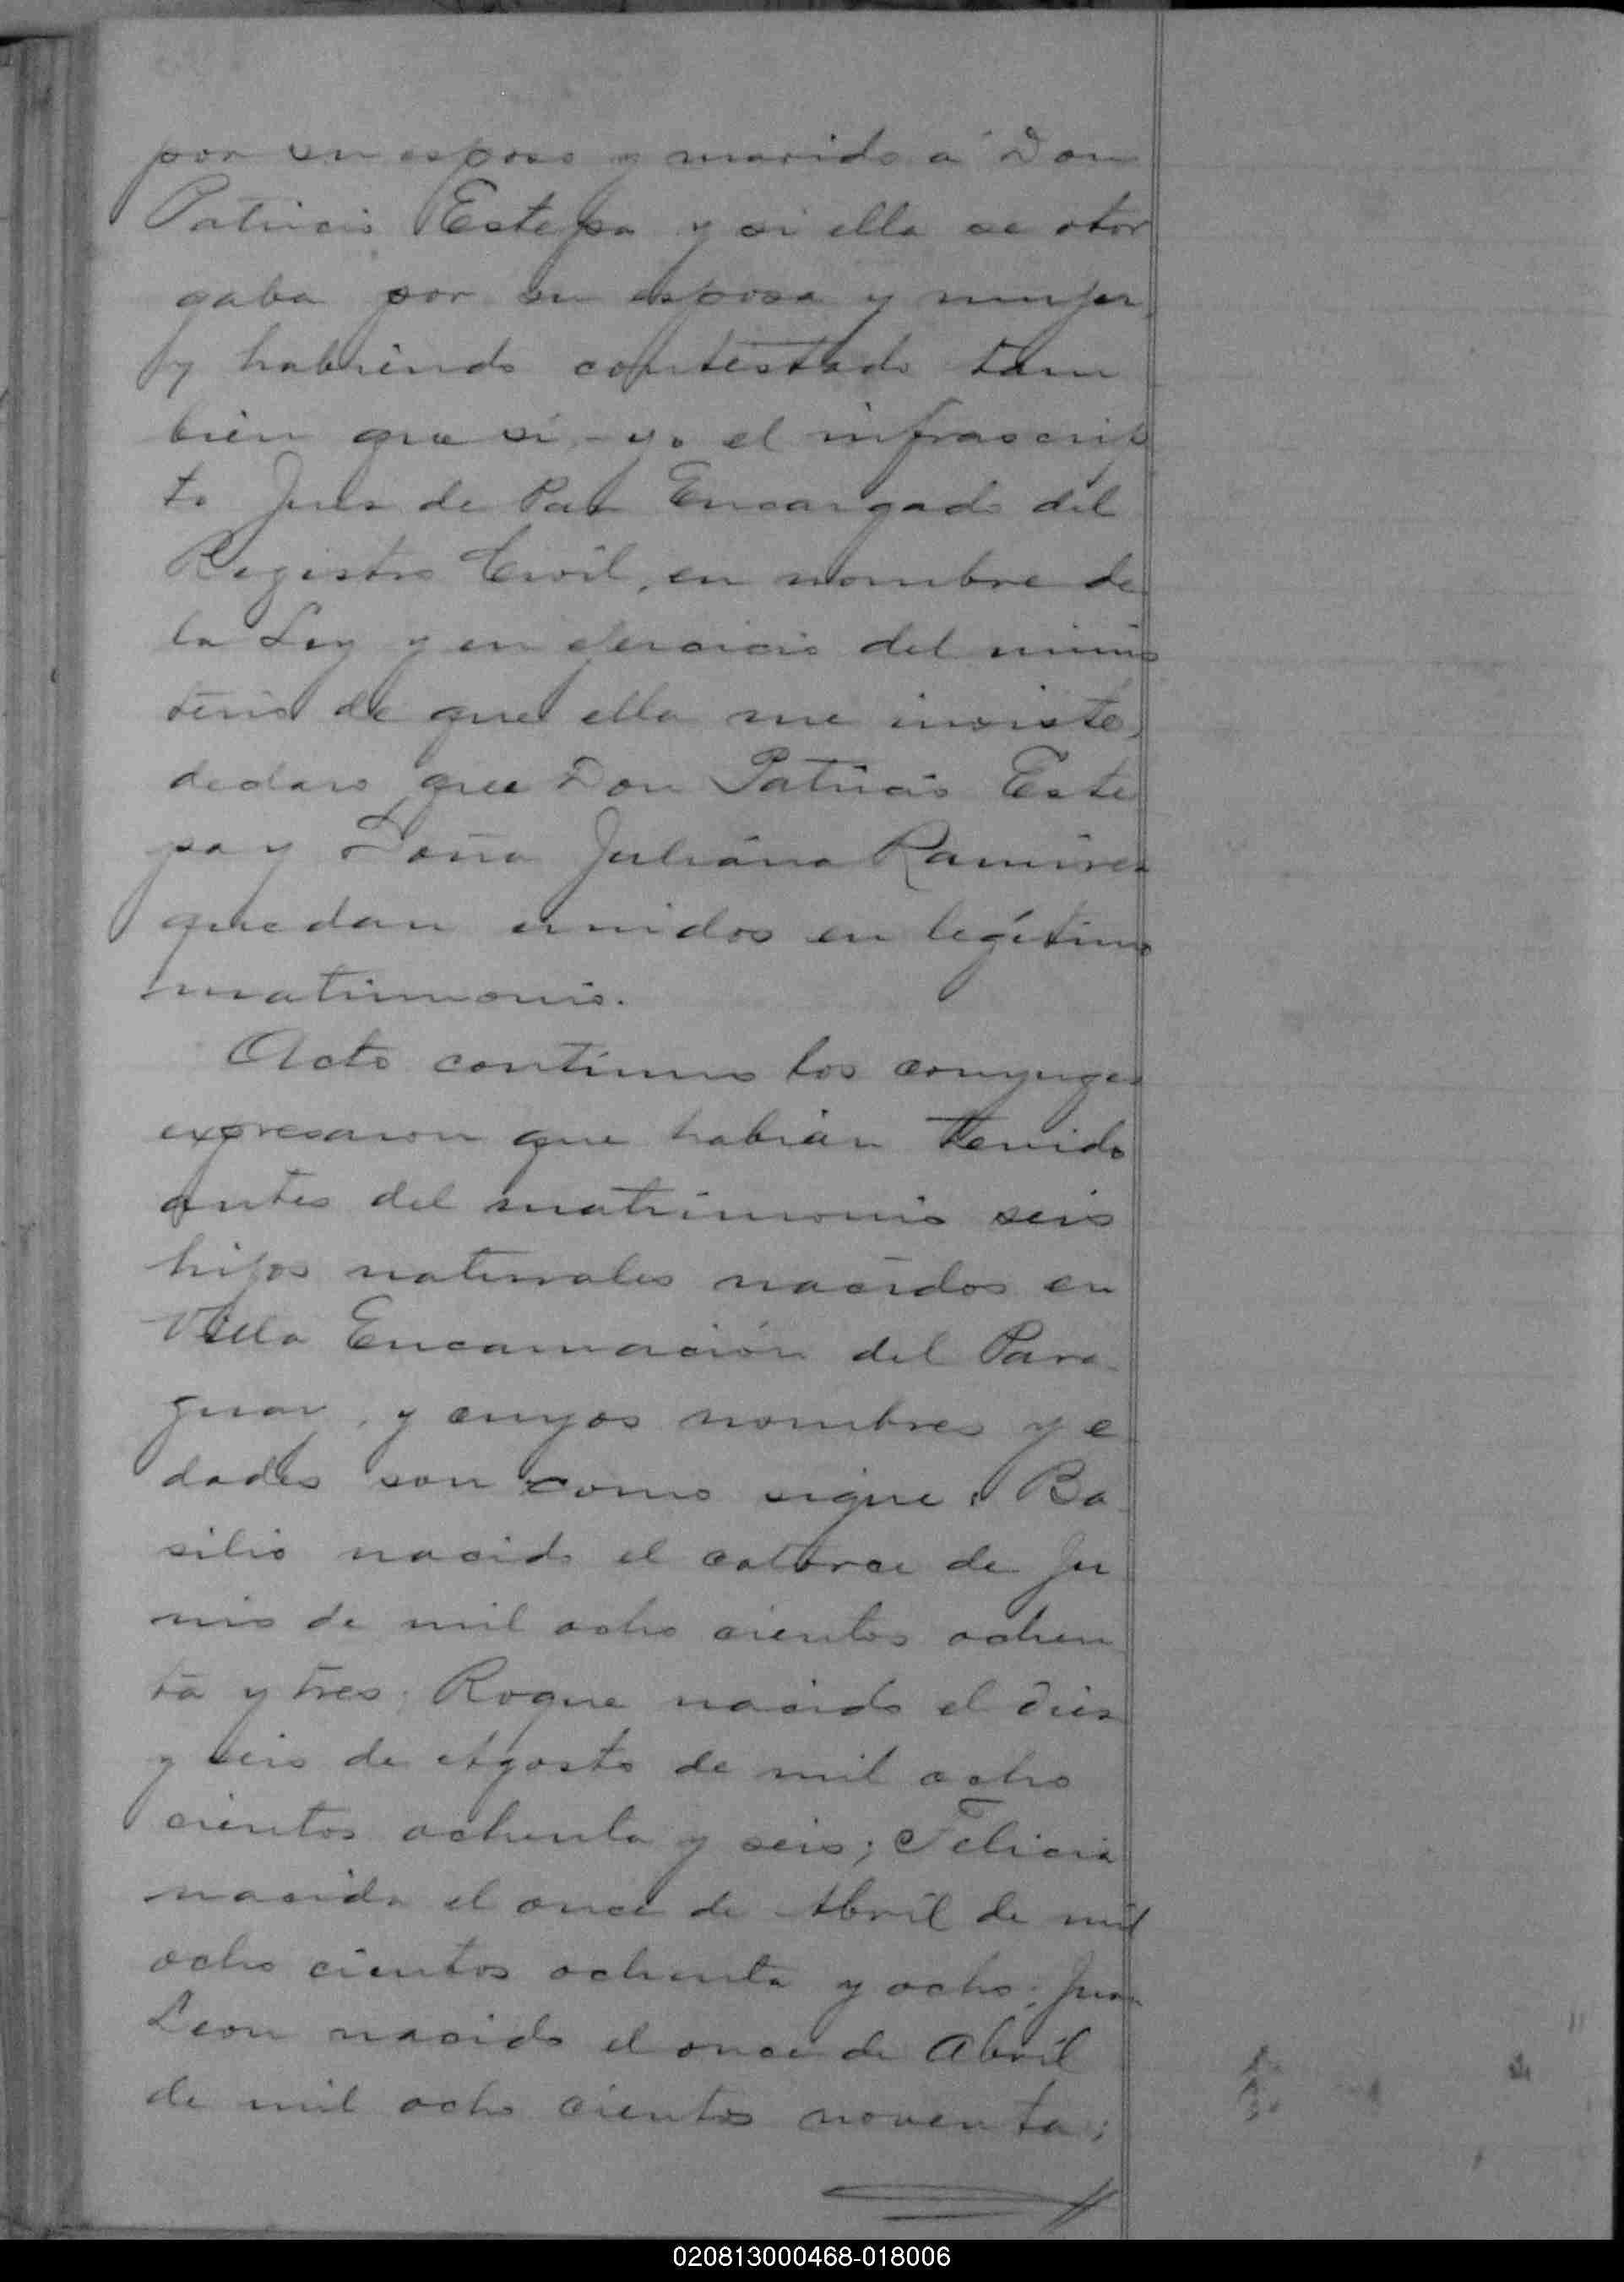 por su esposo y marido a Don
Patricio Estepa y si ella se otor
gaba por su esposa y mujer,
y habiendo contestado tam
bien que si, - yo el infrascrip
to Juez de Paz Encargado del
Registro Civil, en nombre de
la Ley y en ejercicio del minis
terio de que ella me inviste,
declaro que Don Patricio Este
pa y Doña Juliána Ramirez
quedan unidos en legítimo
matrimonio.
Acto continuo los conyuges
expresaron que habian tenido
antes del matrimonio seis
hijos naturales nacidos en
Villa Encarnación del Para-
guay, y cuyos nombres y e
dades son como sigue: Ba
silio nacido el catorce de Ju
nio de mil ocho cientos ochen
ta y tres; Roque nacido el diez
y seis de Agosto de mil ocho
cientos ochenta y seis; Felicia
nacida el once de Abril de mil
ocho cientos ochenta y ocho; Juan
Leon nacido el once de Abril
de mil ocho cientos noventa;
020813000468-018006